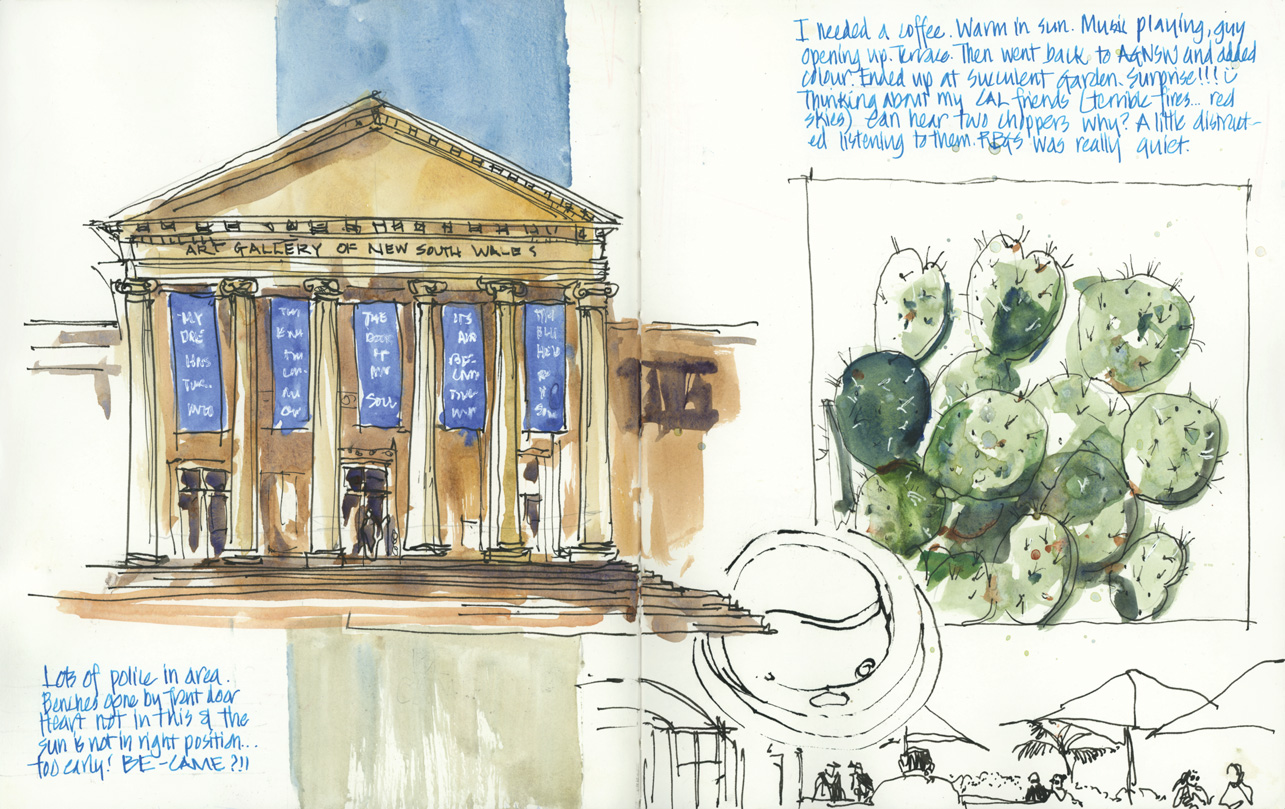 I needed a coffee. Warm in sun. Music playing, guy
opening up. Terrace. Then went back to AGNSW and added
colour. Ended up at Succulent Garden. Surprise!!!
Thinking about my CAL friends (terrible fires... red
skies) Can hear two choppers why? A little distract-
ed listening to them. RBGS was really quiet.
ART GALLERY OF NEW SOUTH WALES
MY
HAS
INTO
THE
SOUL
IT'S
AIR
BE-
CAME
Lots of police in area.
Benches gone by front door
Heart not in this & the
sun is not in right position...
too early! BE-CAME?!!